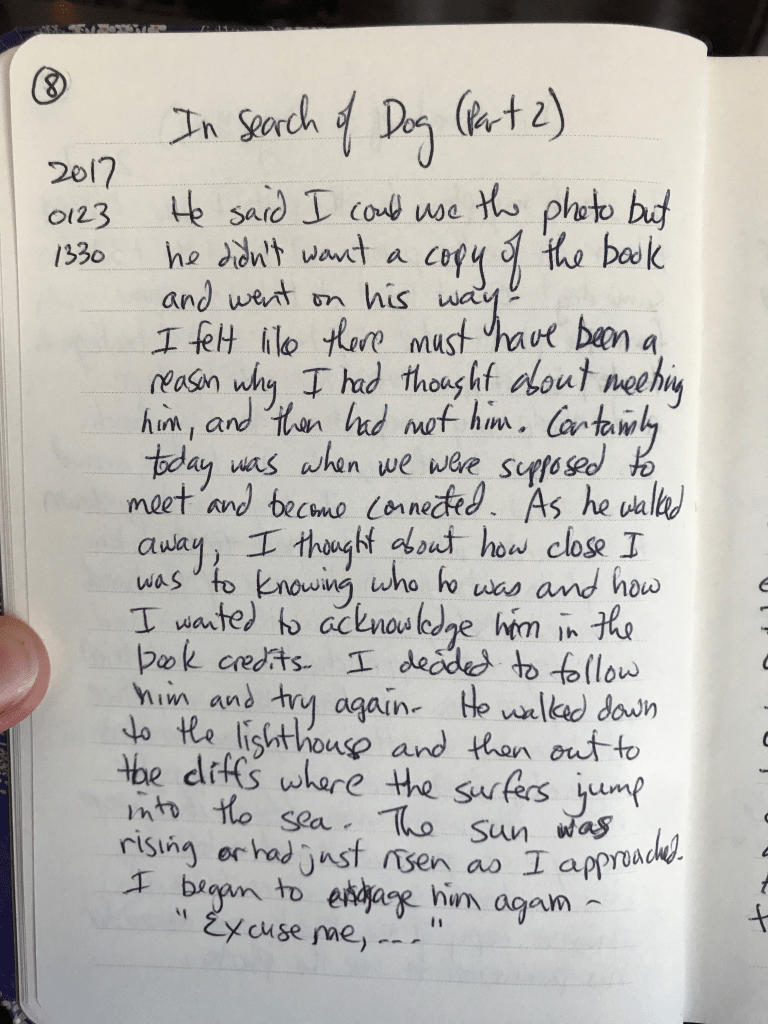 8
In Search of Dog (Part 2)
2017
0123 He said I could use the photo but
1330 he didn't want a copy of the book
and went on his way.
I felt like there must have been a
reason why I had thought about meeting
him, and then had met him. Certainly
today was when we were supposed to
meet and become connected. As he walked
away, I thought about how close I
was to knowing who he was and how
I wanted to acknowledge him in the
book credits. I decided to follow
him and try again. He walked down
to the lighthouse and then out to
the cliffs where the surfers jump
into the sea. The sun was
rising or had just risen as I approached.
I began to engage him again -
"Excuse me, ..."